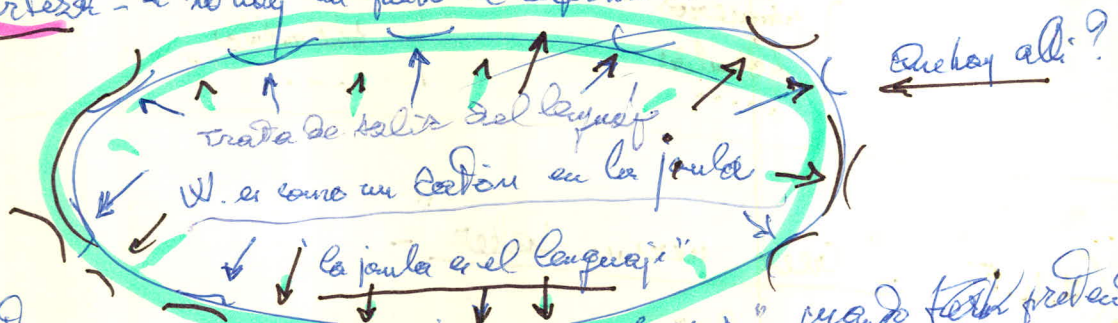 Que hay alli?
Trata de salir del lenguaj
W. es como un ratón en la jaula
"la jaula es el lenguaje"
" cuando